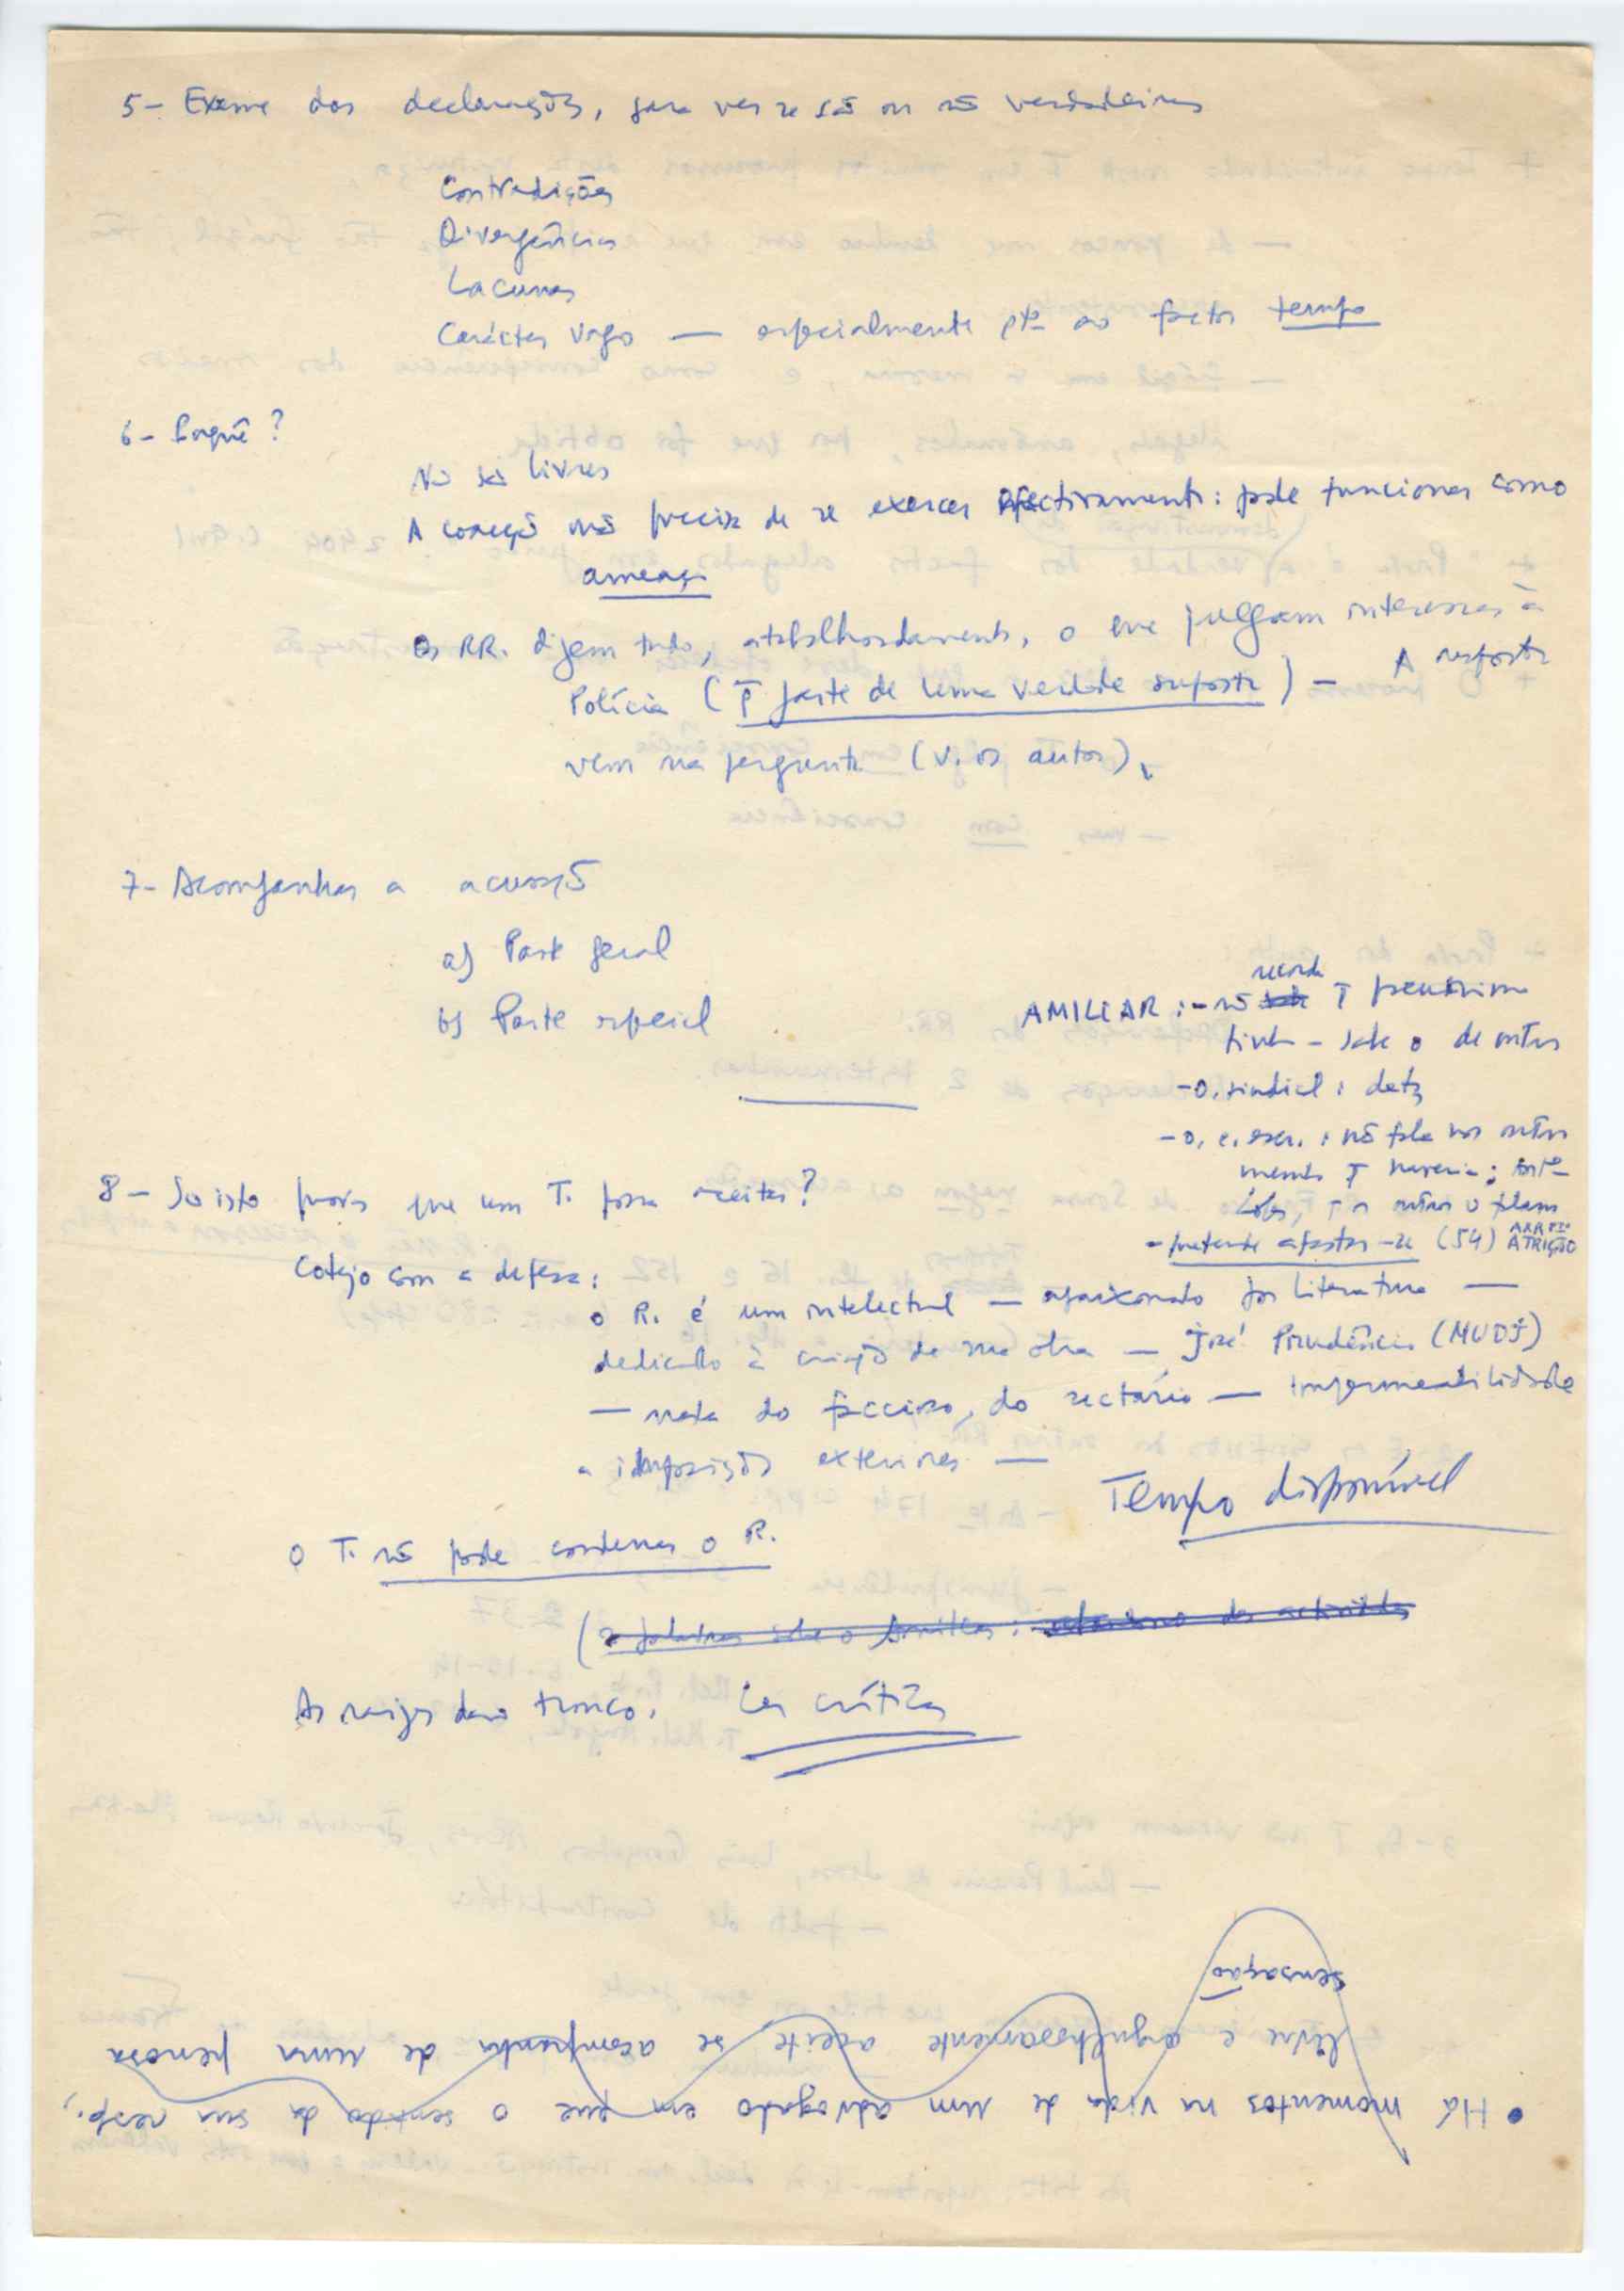 5 - Exame das declarações, para ver se são ou não verdadeiras
Contradições
Divergências
Lacunas
Carácter vago — especialmente qto ao factor tempo
6 - Porquê?
Não são livres
A coacção não precisa de se exercer efectivamente: pode funcionar como
ameaça
Os RR. dizem tudo, atabalhoadamente, o que julgam interessar à
Polícia (q̄ parte de uma verdade suposta) — A resposta
vem na pergunta (v. os autos).
7 - Acompanhar a acusação
a) Parte geral
b) Parte especial
recorda
AMILCAR: - não
tinha - sabe o de outros
- o. sindical: data
- o. e. : não fala nos outros
Lobo, o falam
- pretende afastar-se (54) ATRIÇÃO
8 - Será isto prova que um T. possa aceitar?
Cotejo com a defesa:
o R. é um intelectual — apaixonado por Literatura —
dedicado à criação da sua obra — José Prudêncio (MUDJ)
— nada do faccioso, do sectário — impermeabilidade
a imposições exteriores —
Tempo disponível
O T. não pode condenar o R.
As raízes do tronco. Ler críticas
• Há momentos na vida de um advogado em que o sentido da sua resp.,
livre e orgulhosamente aceite, se acompanha de uma penosa
sensação